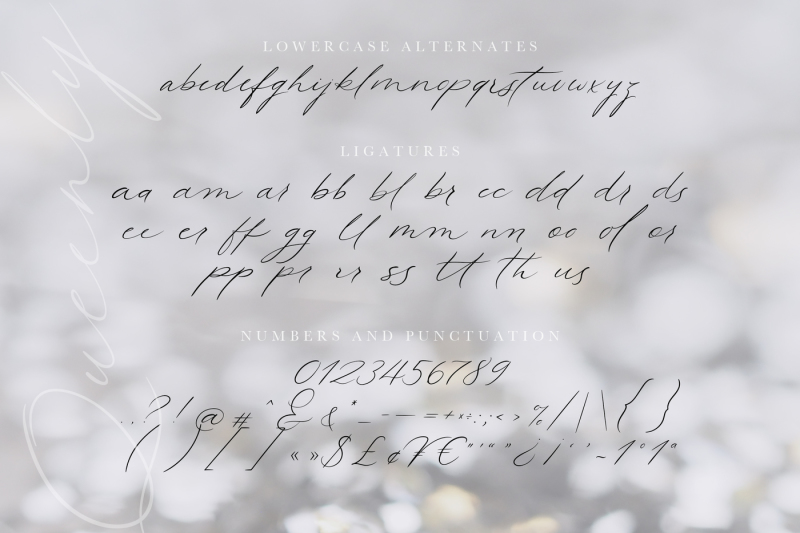 Queenly
LOWERCASE ALTERNATES
abcdefghijklmnopqrstuvwxyz
LIGATURES
aa am ar bb bl br cc dd dr ds
ee er ff gg ll mm nn oo ol or
pp pr rr ss tt th us
NUMBERS AND PUNCTUATION
0123456789
..?!@#^&&*_-–—=+×÷:;‹›%/|\{}
()[]«»$£¢¥€"'“”¿¡‘’~1º1ª